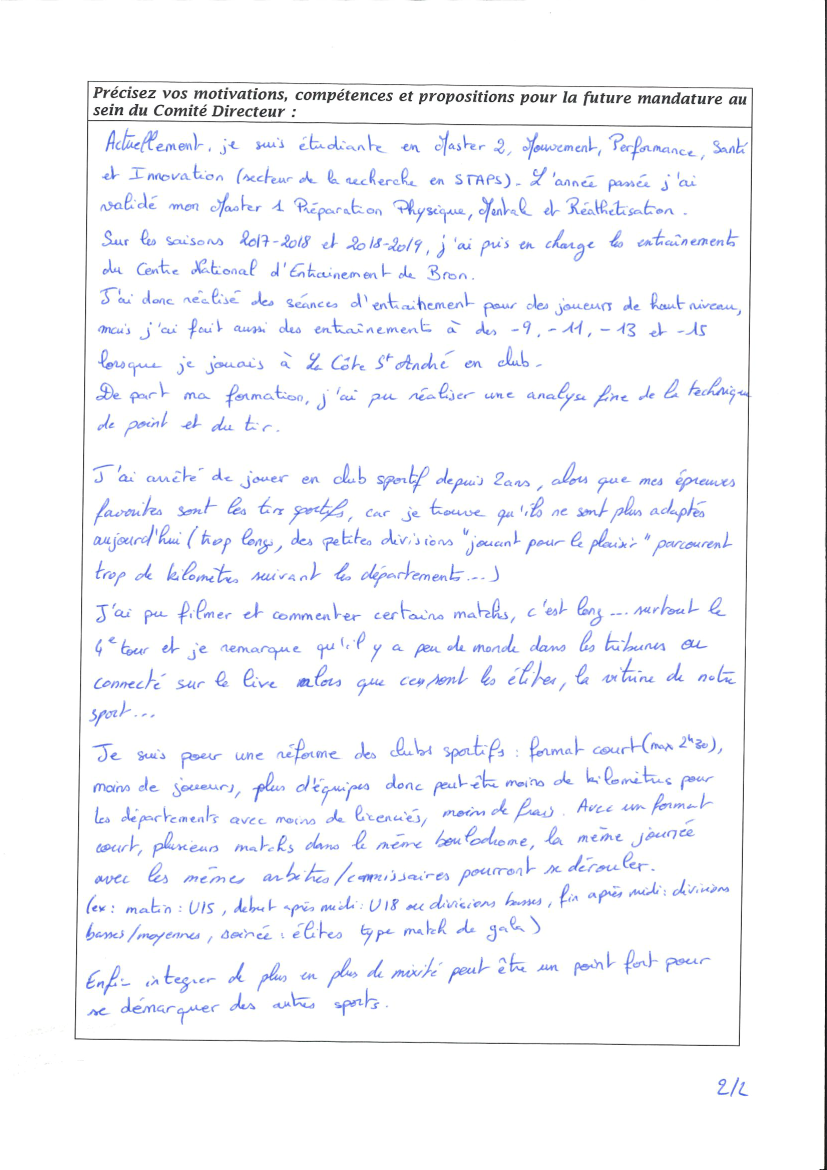 Précisez vos motivations, compétences et propositions pour la future mandature au
sein du Comité Directeur :
Actuellement, je suis étudiante en Master 2, Mouvement, Performance, Santé
et Innovation (secteur de la recherche en STAPS). L'année passée j'ai
validé mon Master 1 Préparation Physique, Mental et Réathétisation.
Sur les saisons 2017-2018 et 2018-2019, j'ai pris en charge les entraînements
du Centre National d'Entrainement de Bron.
J'ai donc réalisé des séances d'entraînement pour des joueurs de haut niveau,
mais j'ai fait aussi des entraînements à des -9, -11, -13 et -15
lorsque je jouais à La Côte St André en club.
De part ma formation, j'ai pu réaliser une analyse fine de la technique
de point et du tir.
J'ai arrêté de jouer en club sportif depuis 2ans, alors que mes épreuves
favorites sont les tirs sportifs, car je trouve qu'ils ne sont plus adaptés
aujourd'hui (trop longs, des petites divisions "jouant pour le plaisir" parcourent
trop de kilomètres suivant les départements...)
J'ai pu filmer et commenter certains matchs, c'est long ... surtout le
4e tour et je remarque qu'il y a peu de monde dans les tribunes ou
connecté sur le live alors que ce sont les élites, la vitrine de notre
sport...
Je suis pour une réforme des clubs sportifs : format court (max 2h30),
moins de joueurs, plus d'équipes donc peut-être moins de kilomètres pour
les départements avec moins de licenciés, moins de frais. Avec un format
court, plusieurs matchs dans le même boulodrome, la même journée
avec les mêmes arbitres/commissaires pourront se dérouler.
(ex : matin : U15, debut après midi : U18 ou divisions basses, fin après midi : divisions
basses/moyennes, soirée : élites type match de gala)
Enfin integrer de plus en plus de mixité peut être un point fort pour
se démarquer des autres sports.
2/2